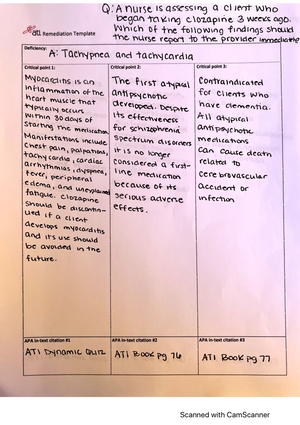 Q: A nurse is assessing a client who
began taking clozapine 3 weeks ago.
Which of the following findings should
the nurse report to the provider immediately
ati Remediation Template
Deficiency:
A: Tachypnea and tachycardia
Critical point 1:
Myocarditis is an
inflammation of the
heart muscle that
typically occurs
within 30 days of
starting the medication.
Manifestations include
chest pain, palpitations,
tachycardia, cardiac
arrhythmias, dyspnea,
fever, peripheral
edema, and unexplained
fatigue. Clozapine
should be discontin-
ued if a client
develops myocarditis
and its use should
be avoided in the
future.
Critical point 2
The first atypical
antipsychotic
developed. Despite
its effectiveness
for schizophrenia
spectrum disorders
it is no longer
considered a first-
line medication
because of its
serious adverse
effects.
Critical point 3:
Contraindicated
for clients who
have dementia.
All atypical
antipsychotic
medications
can cause death
related to
cerebrovascular
accident or
infection
APA in-text citation #1
ATI Dynamic Quiz
APA in-text citation #2
ATI Book pg 76
APA in-text citation #3
ATI Book pg 77
Scanned with CamScanner